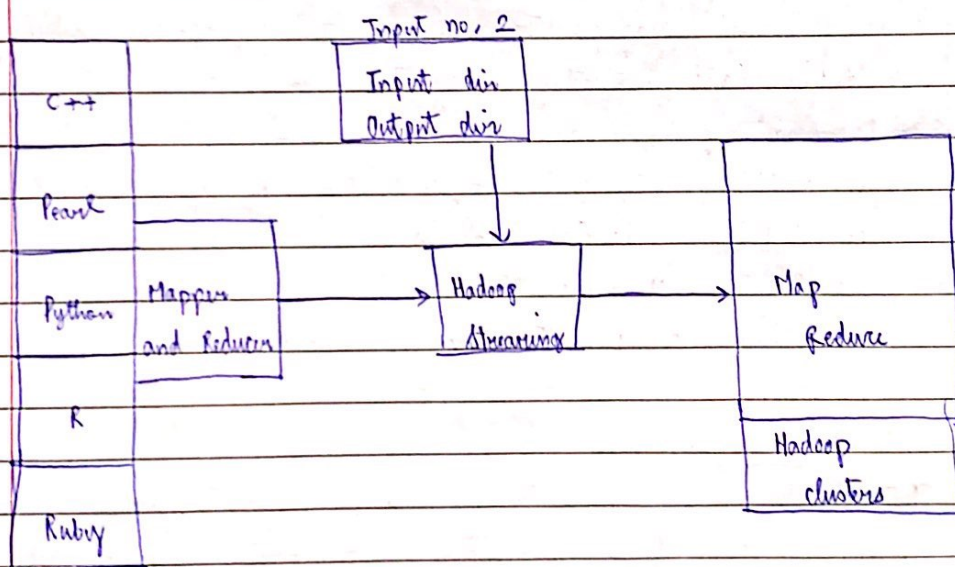 Input no. 2
Input dir
Output dir
C++
Pearl
Python
R
Ruby
Mapper
and Reducer
Hadoop
Streaming
Map
Reduce
Hadoop
clusters